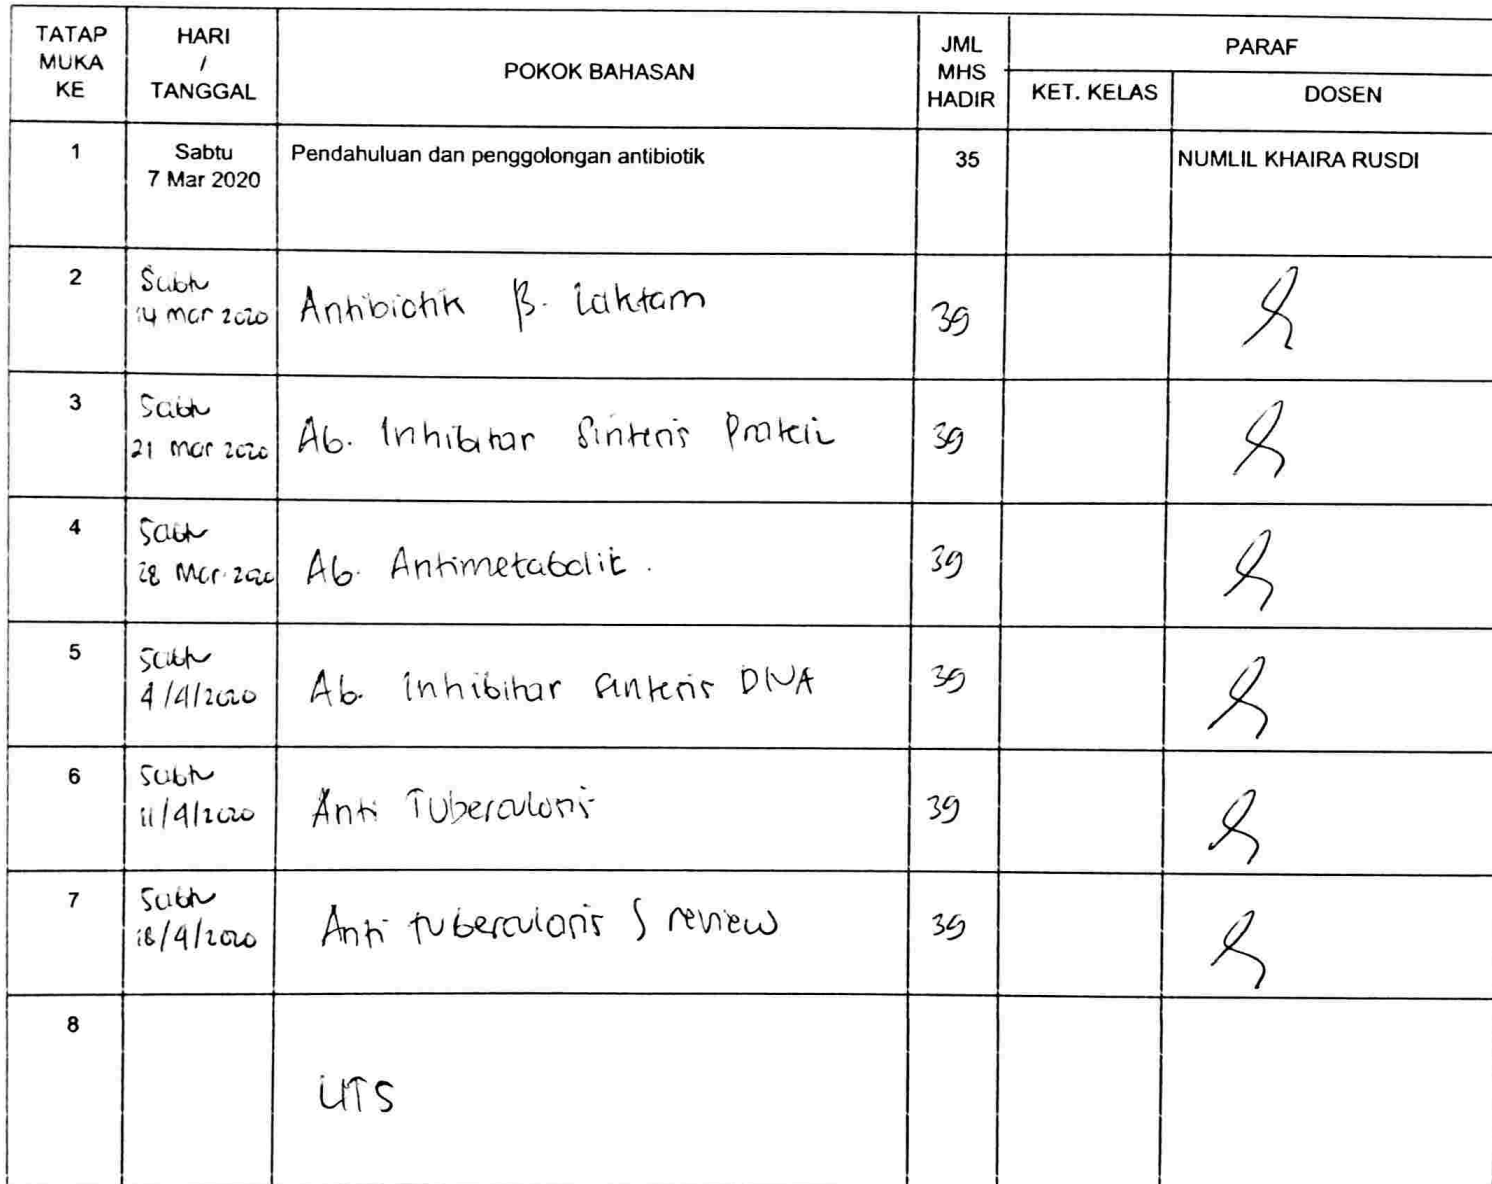 TATAP MUKA KE
HARI / TANGGAL
POKOK BAHASAN
JML MHS HADIR
PARAF
KET. KELAS
DOSEN
1
Sabtu
7 Mar 2020
Pendahuluan dan penggolongan antibiotik
35
NUMLIL KHAIRA RUSDI
2
Sabtu
14 mar 2020
Antibiotik β. Laktam
39
3
Sabtu
21 mar 2020
Ab. Inhibitor Sintesis Protein
39
4
Sabtu
28 Mar. 2020
Ab. Antimetabolit.
39
5
Sabtu
4/4/2020
Ab. Inhibitor Sintesis DNA
39
6
Sabtu
11/4/2020
Anti Tuberculosis
39
7
Sabtu
18/4/2020
Anti tuberculosis & review
39
8
UTS